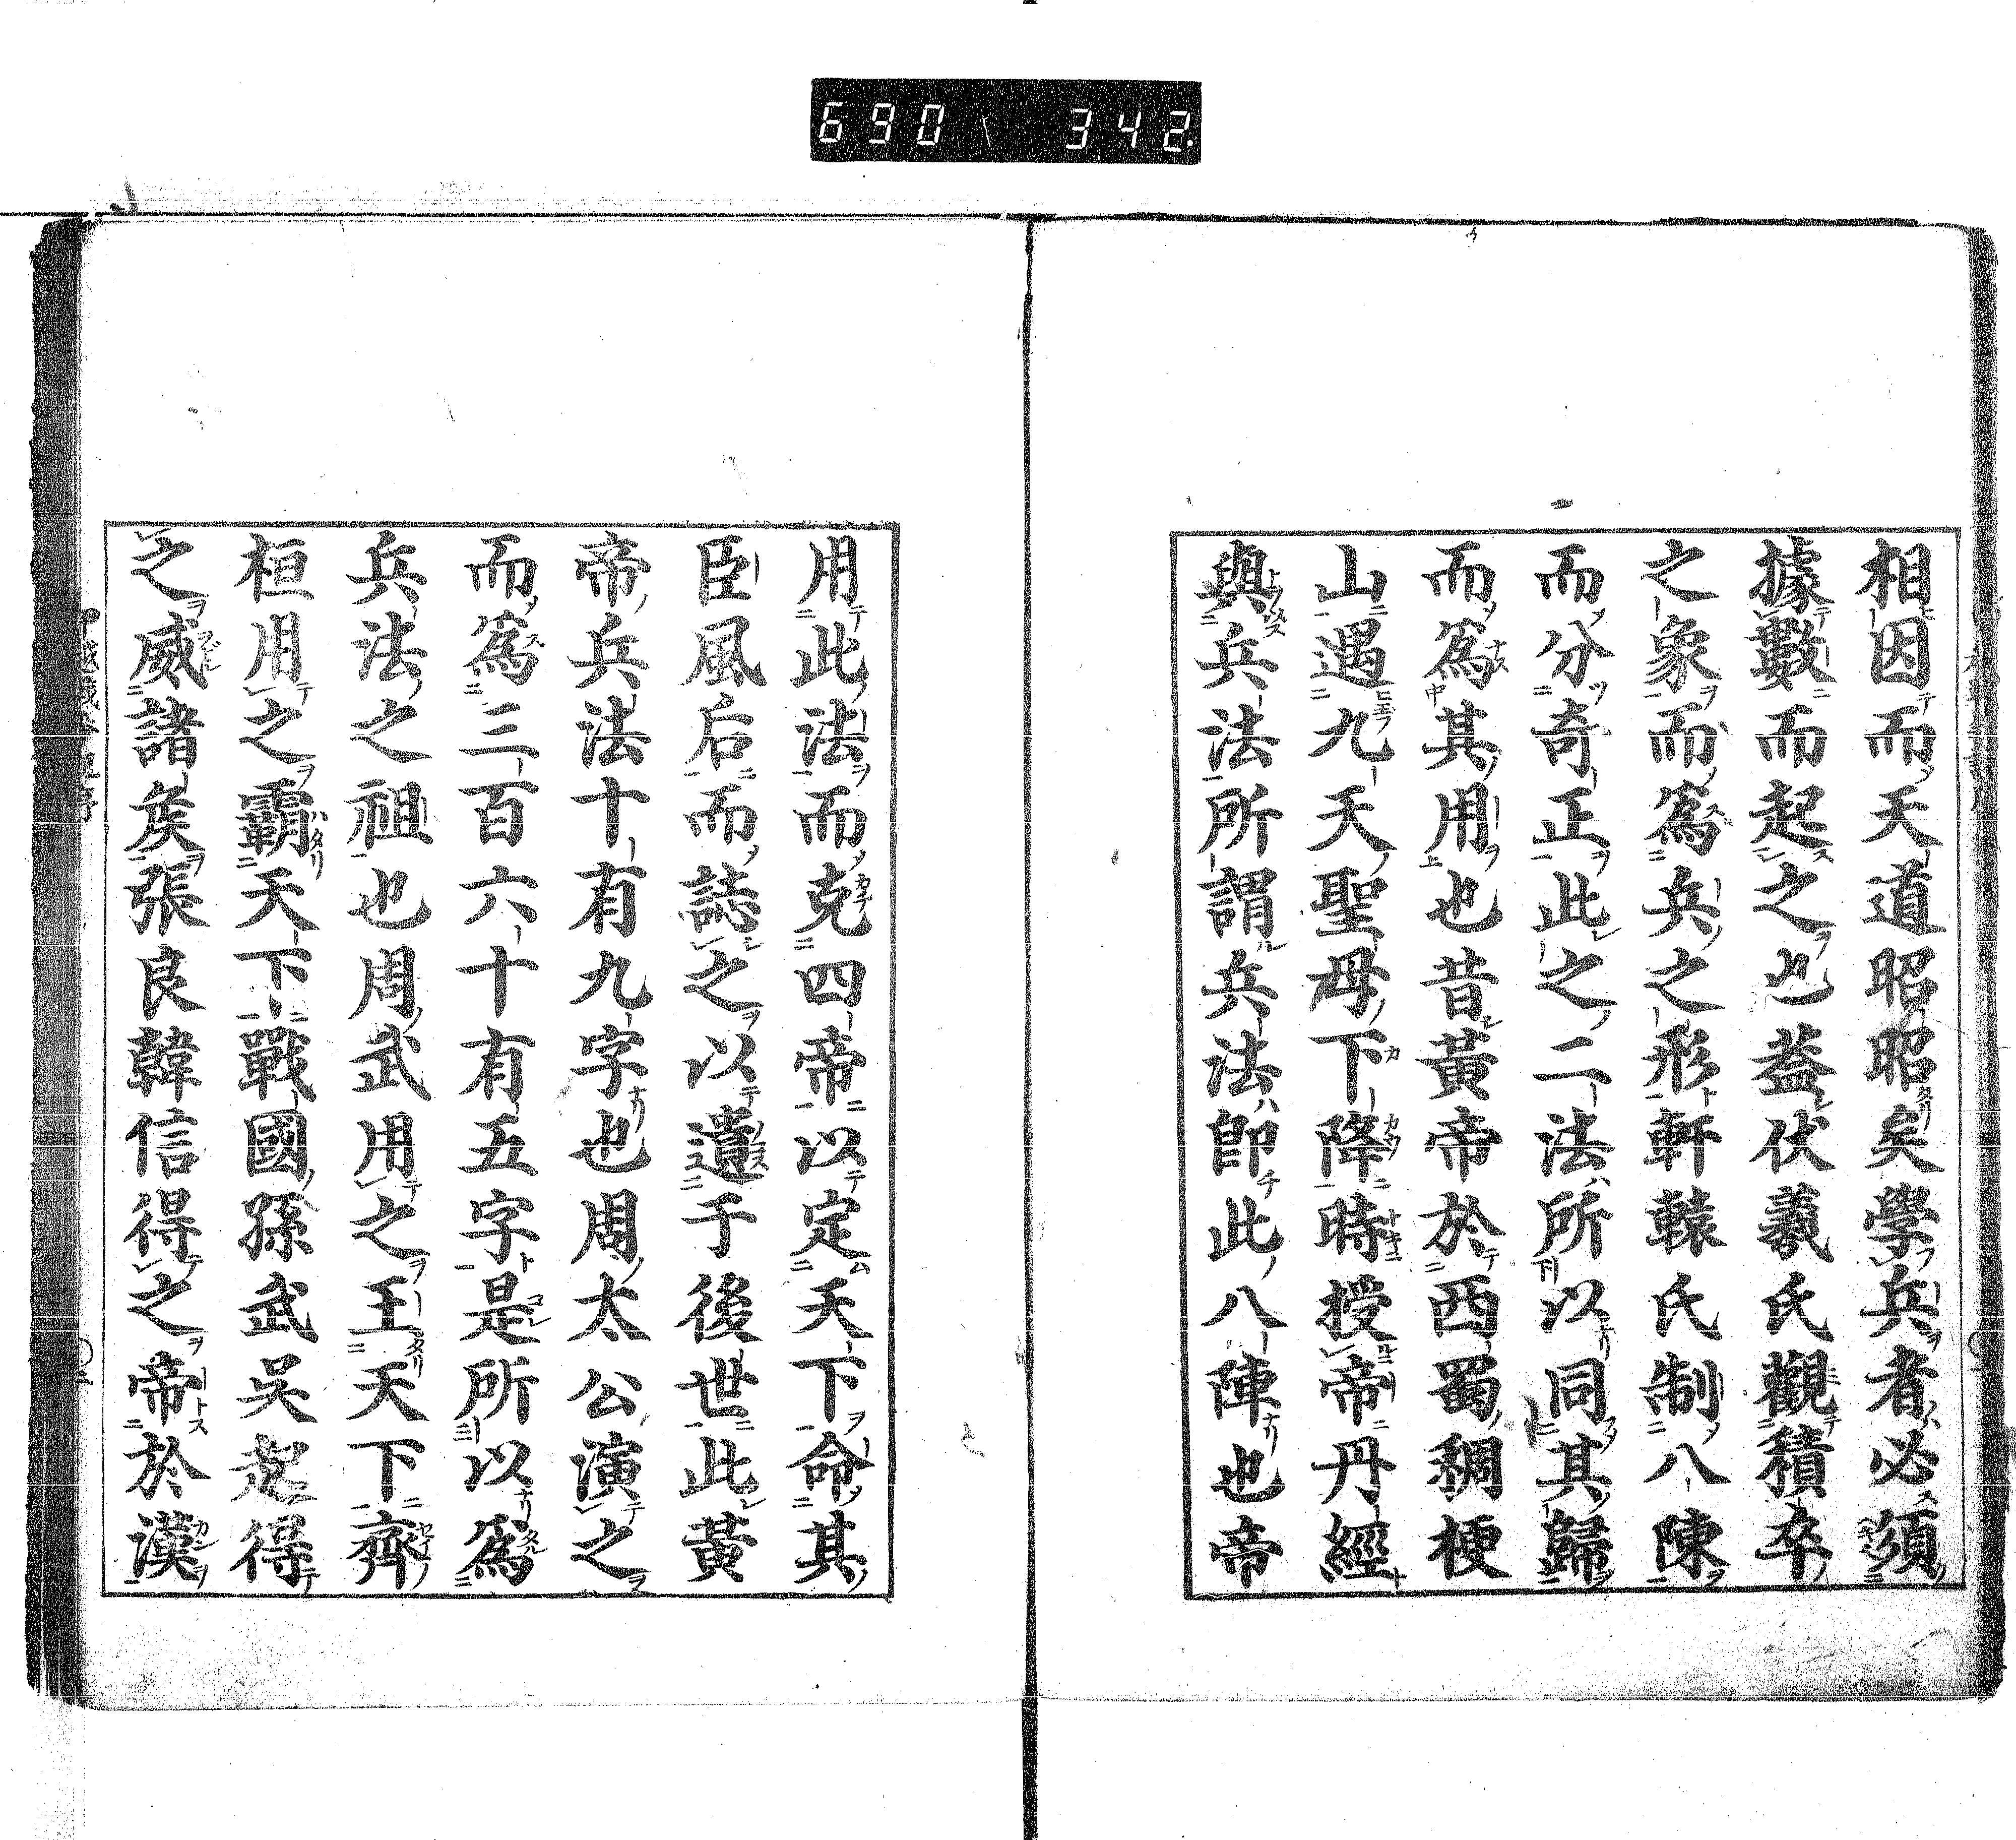 690 342
相因而天道昭昭矣學兵者必須
據數而起之也蓋伏羲氏觀積卒
之象而爲兵之形軒轅氏制八陳
而分奇正此之二法所以同其歸
而爲其用也昔黃帝於西蜀稠梗
山遇九天聖母下降時授帝丹經
與兵法所謂兵法即此八陣也帝
用此法而克四帝以定天下命其
臣風后而誌之以遺于後世此黃
帝兵法十有九字也周太公演之
而爲三百六十有五字是所以爲
兵法之祖也周武用之王天下齊
桓用之霸天下戰國孫武吳起得
之威諸矦張良韓信得之帝於漢